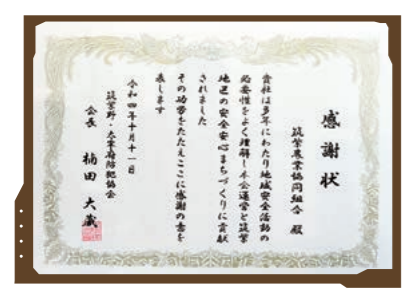 感謝状
筑紫農業協同組合 殿
貴社は多年にわたり地域安全活動の
必要性をよく理解し本会運営と筑紫
地区の安全安心まちづくりに貢献
されました
その功労をたたえここに感謝の意を
表します
令和四年十月十一日
筑紫野・太宰府防犯協会
会長 楠田 大蔵